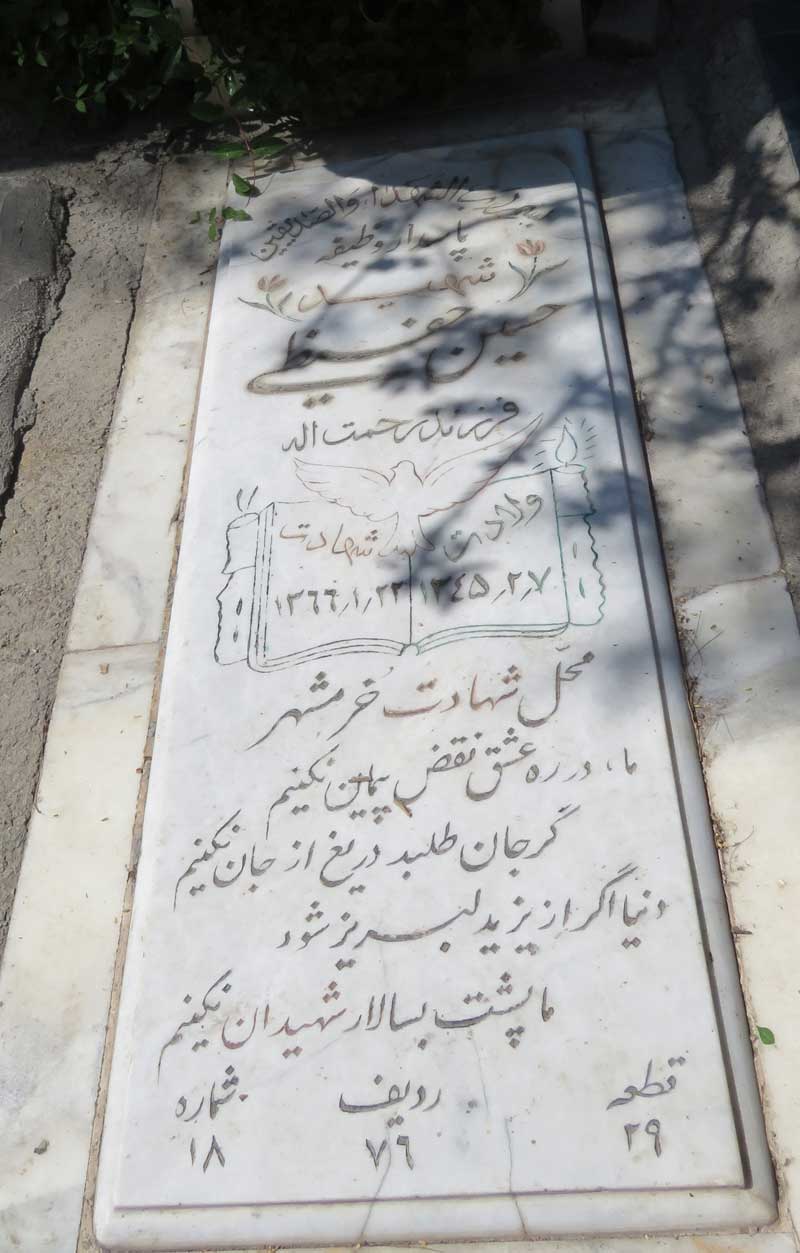 بسم رب الشهداء والصدیقین
پاسدار وظیفه
شهید
حسین حفیظی
فرزند رحمت اله
ولادت شهادت
۱۳۴۵٫۲٫۷ ۱۳۶۶٫۱٫۲۲
محل شهادت خرمشهر
ما در ره عشق نقض پیمان نکنیم
گر جان طلبد دریغ از جان نکنیم
دنیا اگر از یزید لبریز شود
ما پشت بسالار شهیدان نکنیم
قطعه ردیف شماره
۲۹ ۷۶ ۱۸